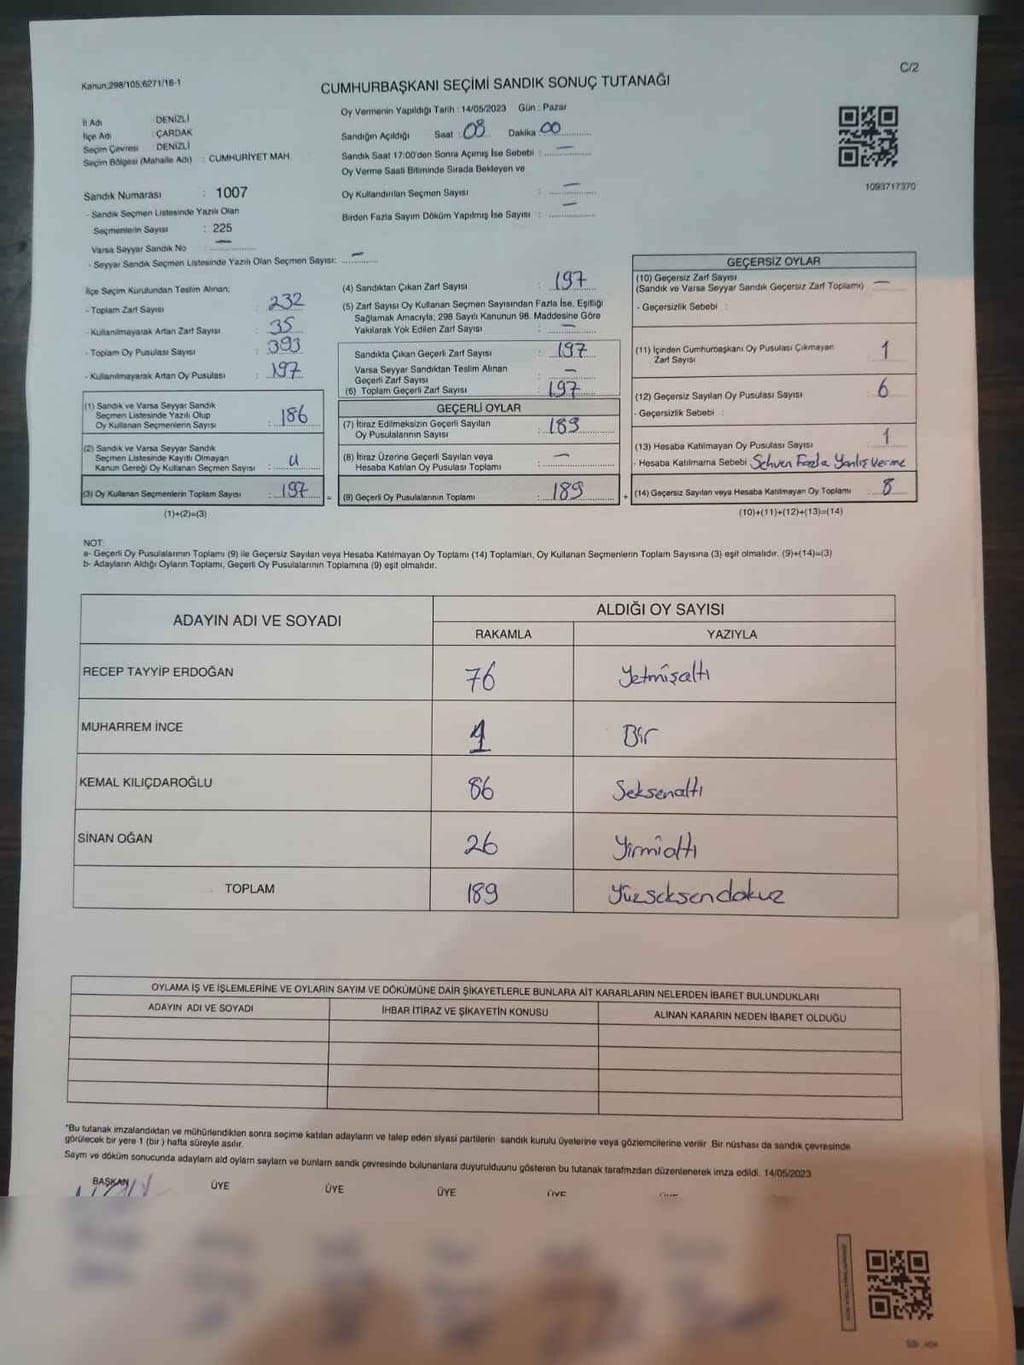 C/2
Kanun:298/105;6271/18-1
CUMHURBAŞKANI SEÇİMİ SANDIK SONUÇ TUTANAĞI
İl Adı : DENİZLİ
İlçe Adı : ÇARDAK
Seçim Çevresi : DENİZLİ
Seçim Bölgesi (Mahalle Adı) : CUMHURİYET MAH.
Sandık Numarası : 1007
- Sandık Seçmen Listesinde Yazılı Olan
Seçmenlerin Sayısı : 225
Varsa Seyyar Sandık No : —
- Seyyar Sandık Seçmen Listesinde Yazılı Olan Seçmen Sayısı: —
Oy Vermenin Yapıldığı Tarih : 14/05/2023 Gün : Pazar
Sandığın Açıldığı Saat : 08 Dakika 00
Sandık Saat 17:00'den Sonra Açımış İse Sebebi : —
Oy Verme Saati Bitiminde Sırada Bekleyen ve
Oy Kullandırılan Seçmen Sayısı : —
Birden Fazla Sayım Döküm Yapılmış İse Sayısı : —
1093717370
İlçe Seçim Kurulundan Teslim Alınan;
- Toplam Zarf Sayısı : 232
- Kullanılmayarak Artan Zarf Sayısı : 35
- Toplam Oy Pusulası Sayısı : 393
- Kullanılmayarak Artan Oy Pusulası : 197
(1) Sandık ve Varsa Seyyar Sandık
Seçmen Listesinde Yazılı Olup
Oy Kullanan Seçmenlerin Sayısı : 186
(2) Sandık ve Varsa Seyyar Sandık
Seçmen Listesinde Kayıtlı Olmayan
Kanun Gereği Oy Kullanan Seçmen Sayısı : 11
(3) Oy Kullanan Seçmenlerin Toplam Sayısı : 197
(1)+(2)=(3)
(4) Sandıktan Çıkan Zarf Sayısı : 197
(5) Zarf Sayısı Oy Kullanan Seçmen Sayısından Fazla İse, Eşitliği
Sağlamak Amacıyla; 298 Sayılı Kanunun 98. Maddesine Göre
Yakılarak Yok Edilen Zarf Sayısı : —
Sandıkta Çıkan Geçerli Zarf Sayısı : 197
Varsa Seyyar Sandıktan Teslim Alınan
Geçerli Zarf Sayısı : —
(6) Toplam Geçerli Zarf Sayısı : 197
GEÇERLİ OYLAR
(7) İtiraz Edilmeksizin Geçerli Sayılan
Oy Pusulalarının Sayısı : 189
(8) İtiraz Üzerine Geçerli Sayılan veya
Hesaba Katılan Oy Pusulası Toplamı : —
= (9) Geçerli Oy Pusulalarının Toplamı : 189 +
GEÇERSİZ OYLAR
(10) Geçersiz Zarf Sayısı
(Sandık ve Varsa Seyyar Sandık Geçersiz Zarf Toplamı) —
- Geçersizlik Sebebi :
(11) İçinden Cumhurbaşkanı Oy Pusulası Çıkmayan
Zarf Sayısı 1
(12) Geçersiz Sayılan Oy Pusulası Sayısı 6
- Geçersizlik Sebebi :
(13) Hesaba Katılmayan Oy Pusulası Sayısı 1
- Hesaba Katılmama Sebebi Sehven Fazla Yanlış Verme
(14) Geçersiz Sayılan veya Hesaba Katılmayan Oy Toplamı 8
(10)+(11)+(12)+(13)=(14)
NOT:
a- Geçerli Oy Pusulalarının Toplamı (9) ile Geçersiz Sayılan veya Hesaba Katılmayan Oy Toplamı (14) Toplamları, Oy Kullanan Seçmenlerin Toplam Sayısına (3) eşit olmalıdır. (9)+(14)=(3)
b- Adayların Aldığı Oyların Toplamı, Geçerli Oy Pusulalarının Toplamına (9) eşit olmalıdır.
ADAYIN ADI VE SOYADI ALDIĞI OY SAYISI
RAKAMLA YAZIYLA
RECEP TAYYİP ERDOĞAN 76 Yetmişaltı
MUHARREM İNCE 1 Bir
KEMAL KILIÇDAROĞLU 86 Seksenaltı
SİNAN OĞAN 26 Yirmialtı
TOPLAM 189 Yüzseksendokuz
OYLAMA İŞ VE İŞLEMLERİNE VE OYLARIN SAYIM VE DÖKÜMÜNE DAİR ŞİKAYETLERLE BUNLARA AİT KARARLARIN NELERDEN İBARET BULUNDUKLARI
ADAYIN ADI VE SOYADI İHBAR İTİRAZ VE ŞİKAYETİN KONUSU ALINAN KARARIN NEDEN İBARET OLDUĞU
"Bu tutanak imzalandıktan ve mühürlendikten sonra seçime katılan adayların ve talep eden siyasi partilerin sandık kurulu üyelerine veya gözlemcilerine verilir. Bir nüshası da sandık çevresinde
görülecek bir yere 1 (bir) hafta süreyle asılır.
Sayım ve döküm sonucunda adayların ald oyların sayların ve bunların sandk çevresinde bulunanlara duyurulduunu gösteren bu tutanak tarafmzdan düzenlenerek imza edildi. 14/05/2023
BAŞKAN ÜYE ÜYE ÜYE ÜYE